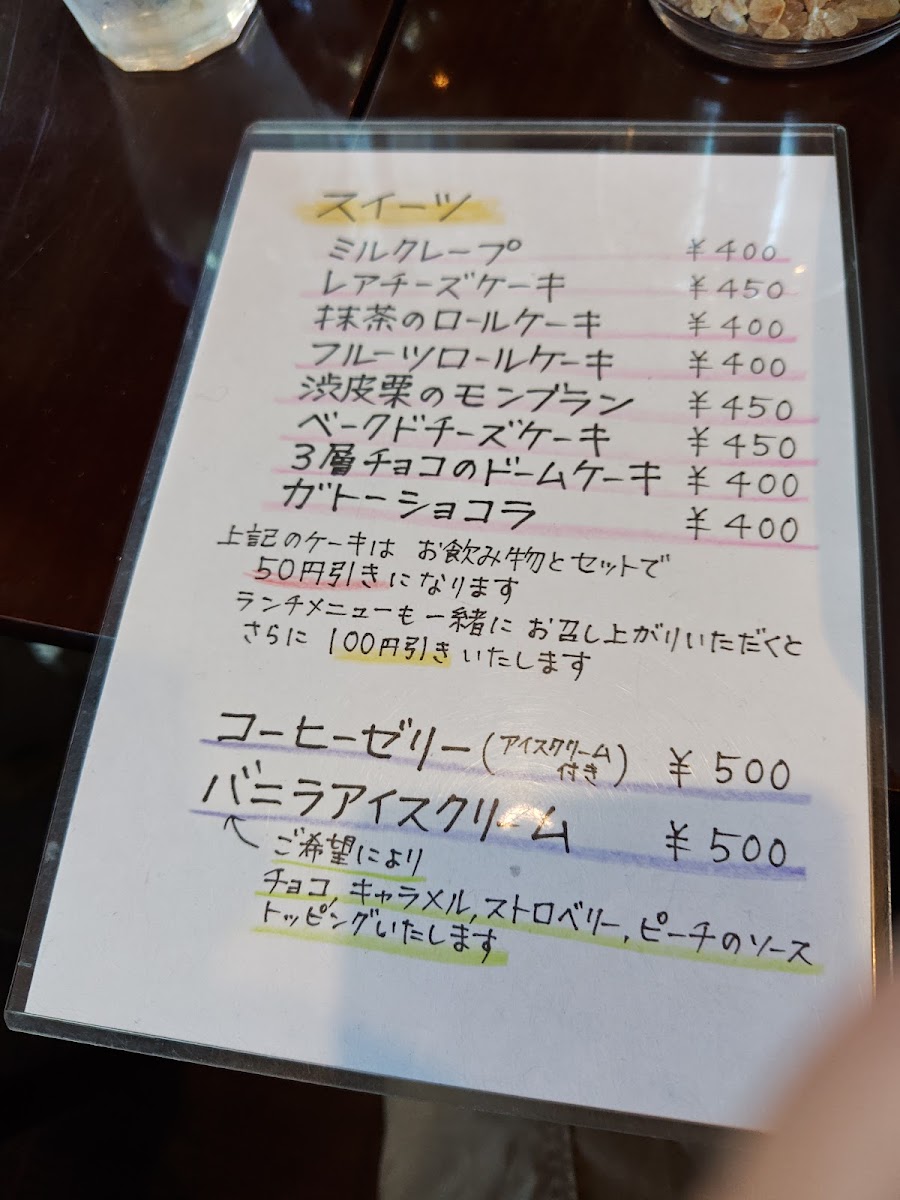 スイーツ
ミルクレープ ¥400
レアチーズケーキ ¥450
抹茶のロールケーキ ¥400
フルーツロールケーキ ¥400
渋皮栗のモンブラン ¥450
ベークドチーズケーキ ¥450
3層チョコのドームケーキ ¥400
ガトーショコラ ¥400
上記のケーキは お飲み物とセットで
50円引きになります
ランチメニューも一緒に お召し上がりいただくと
さらに 100円引きいたします
コーヒーゼリー(アイスクリーム付き) ¥500
バニラアイスクリーム ¥500
ご希望により
チョコ,キャラメル,ストロベリー,ピーチのソース
トッピングいたします